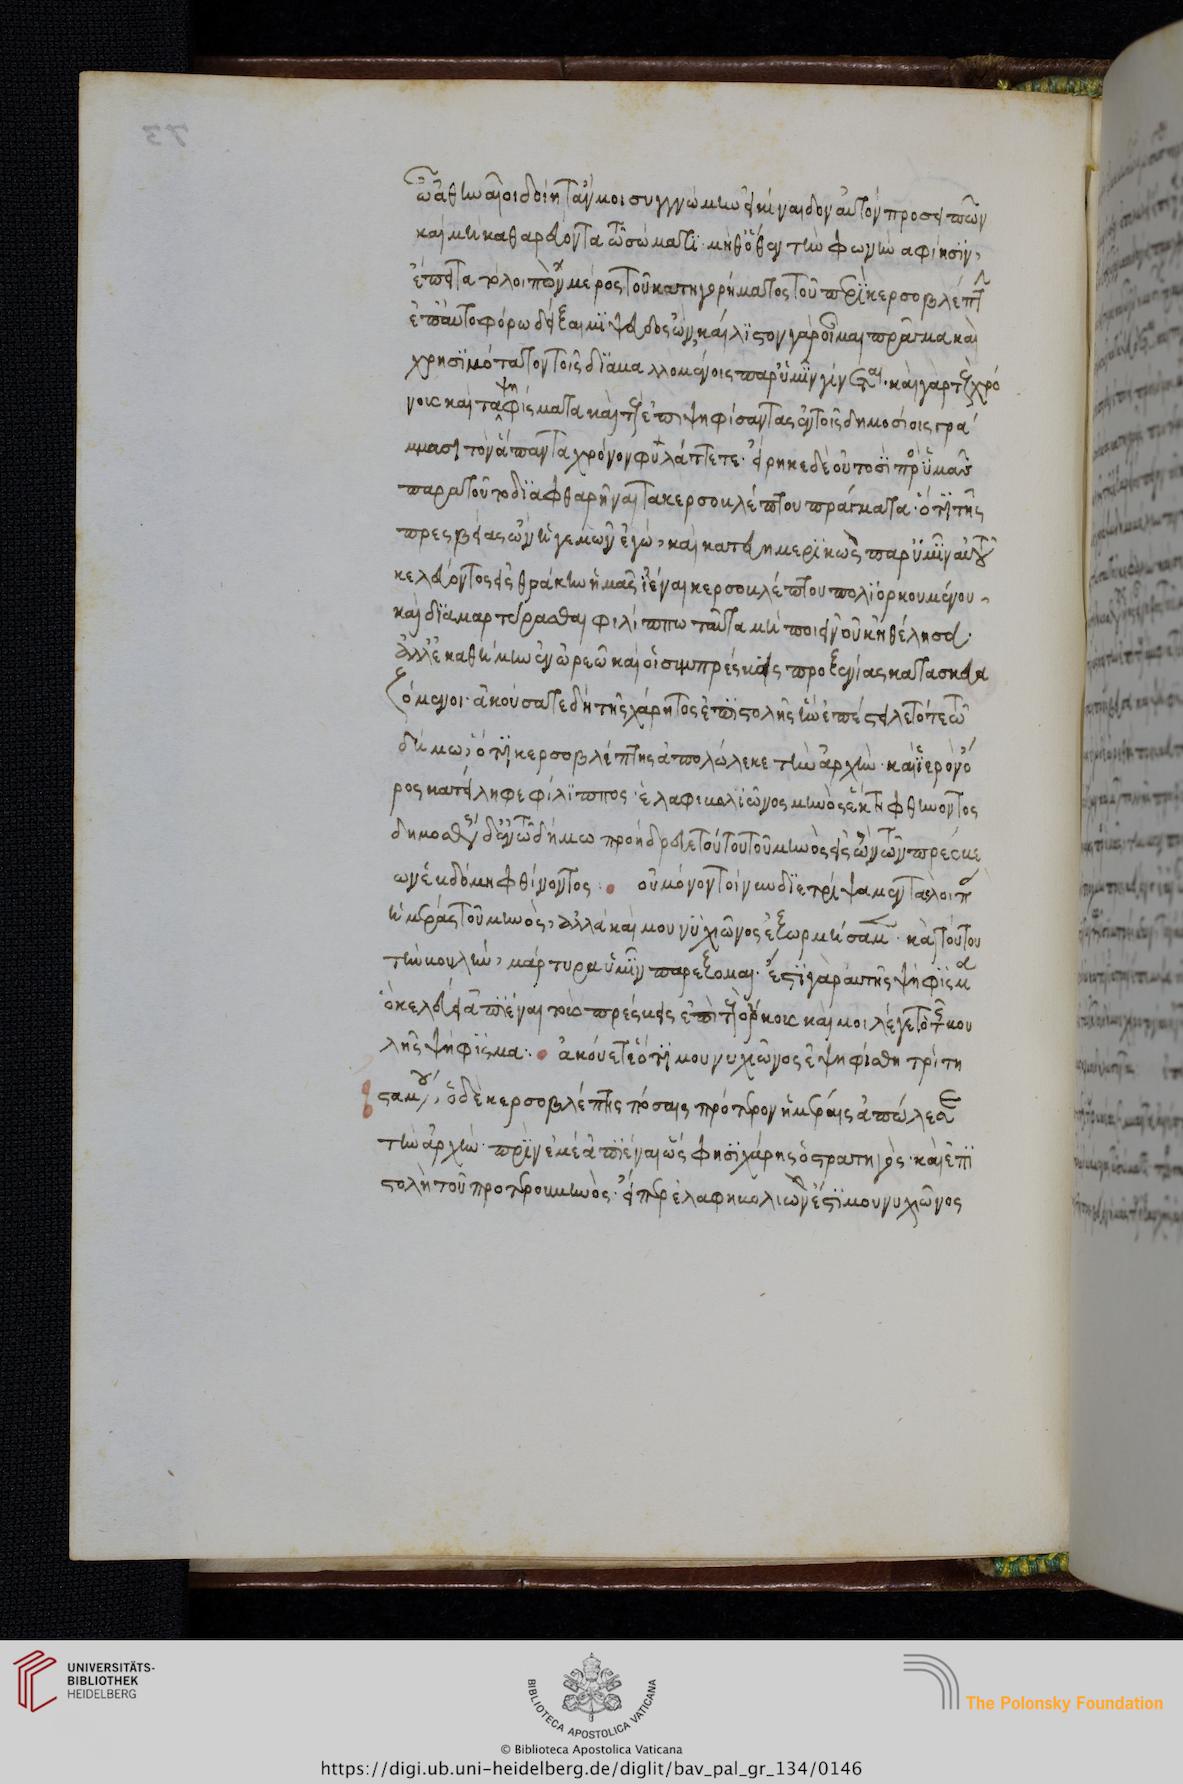 73
ὦ ἀθηναῖοι δοίητ' ἄν μοι συγγνώμην εἰ κίναιδον αὐτὸν προσειπὼν
καὶ μὴ καθαρεύοντα τῶ σώματι μηδ' ὅθεν τὴν φωνὴν ἀφίησιν,
ἔπειτα τὸ λοιπὸν μέρος τοῦ κατηγορήματος τοῦ περὶ κερσοβλέπτ
ἐπ' αὐτοφόρω δείξαιμι ψεῦδος ὄν, κάλλιστον γὰρ οἶμαι πρᾶγμα καὶ
χρησιμώτατον τοῖς διαμαλλομένοις παρ' ὑμῖν γίνεται. καὶ γὰρ τοὺς χρό
νους καὶ τὰ ψηφίσματα καὶ τοὺς ἐπιψηφίσαντας ἐν τοῖς δημοσίοις γρά
μμασι τὸν ἅπαντα χρόνον φυλάττετε. εἴρηκε δὲ οὑτοσὶ πρὸς ὑμᾶς
παρὰ τοῦτο διαφθαρῆναι τὰ κερσοβλέπτου πράγματα. ὅτι τῆς
πρεσβείας ὢν ἡγεμὼν ἐγὼ, καὶ κατευημερικὼς παρ' ὑμῖν αὐτοῦ
κελεύοντος εἰς θράκην ἡμᾶς ἰέναι κερσοβλέπτου πολιορκουμένου,
καὶ διαμαρτύρασθαι φιλίππω ταῦτα μὴ ποιεῖν οὐκ ἠθέλησα.
ἀλλ' ἐκαθήμην ἐν ὠρεῶ καὶ οἱ συμπρέσβεις προξενίας κατασκευα
ζόμενοι. ἀκούσατε δὴ τῆς χάρητος ἐπιστολῆς ἣν ἐπέστειλε τότε τῶ
δήμω, ὅτι κερσοβλέπτης ἀπολώλεκε τὴν ἀρχὴν. καὶ ἱερὸν ὄ
ρος κατείληφε φίλιππος. ἐλαφιβολιῶνος μηνὸς ἕκτη φθίνοντος
δημοσθένης δ' ἐν τῶ δήμω προήδρευε τούτου τοῦ μηνὸς εἷς ὢν τῶν πρέσβε
ων ἑβδόμη φθίνοντος. οὐ μόνον τοίνυν διετρίψαμεν τὰς λοιπὰς
ἡμέρας τοῦ μηνὸς, ἀλλὰ καὶ μουνυχιῶνος ἐξωρμήσαμεν. καὶ τούτου
τὴν βουλὴν, μάρτυρα ὑμῖν παρέξομαι. ἔστι γὰρ αὐτῆς ψήφισμα
ὃ κελεύει ἀπιέναι τοὺς πρέσβεις ἐπὶ τοὺς ὅρκους καί μοι λέγε τὸ τῆς βου
λῆς ψήφισμα. ἀκούετε ὅτι μουνυχιῶνος ἐψηφίσθη τρίτη
σταμένου, ὁ δὲ κερσοβλέπτης πόσαις πρότερον ἡμέραις ἀπώλεσε
τὴν ἀρχὴν. πρὶν ἐμὲ ἀπιέναι ὥς φησι χάρης ὁ στρατηγὸς. καὶ ἐπι
στολὴ τοῦ προτέρου μηνὸς. εἴπερ ἐλαφηβολιών ἐστι μουνυχιῶνος
UNIVERSITÄTS-
BIBLIOTHEK
HEIDELBERG
BIBLIOTECA APOSTOLICA VATICANA
The Polonsky Foundation
© Biblioteca Apostolica Vaticana
https://digi.ub.uni-heidelberg.de/diglit/bav_pal_gr_134/0146